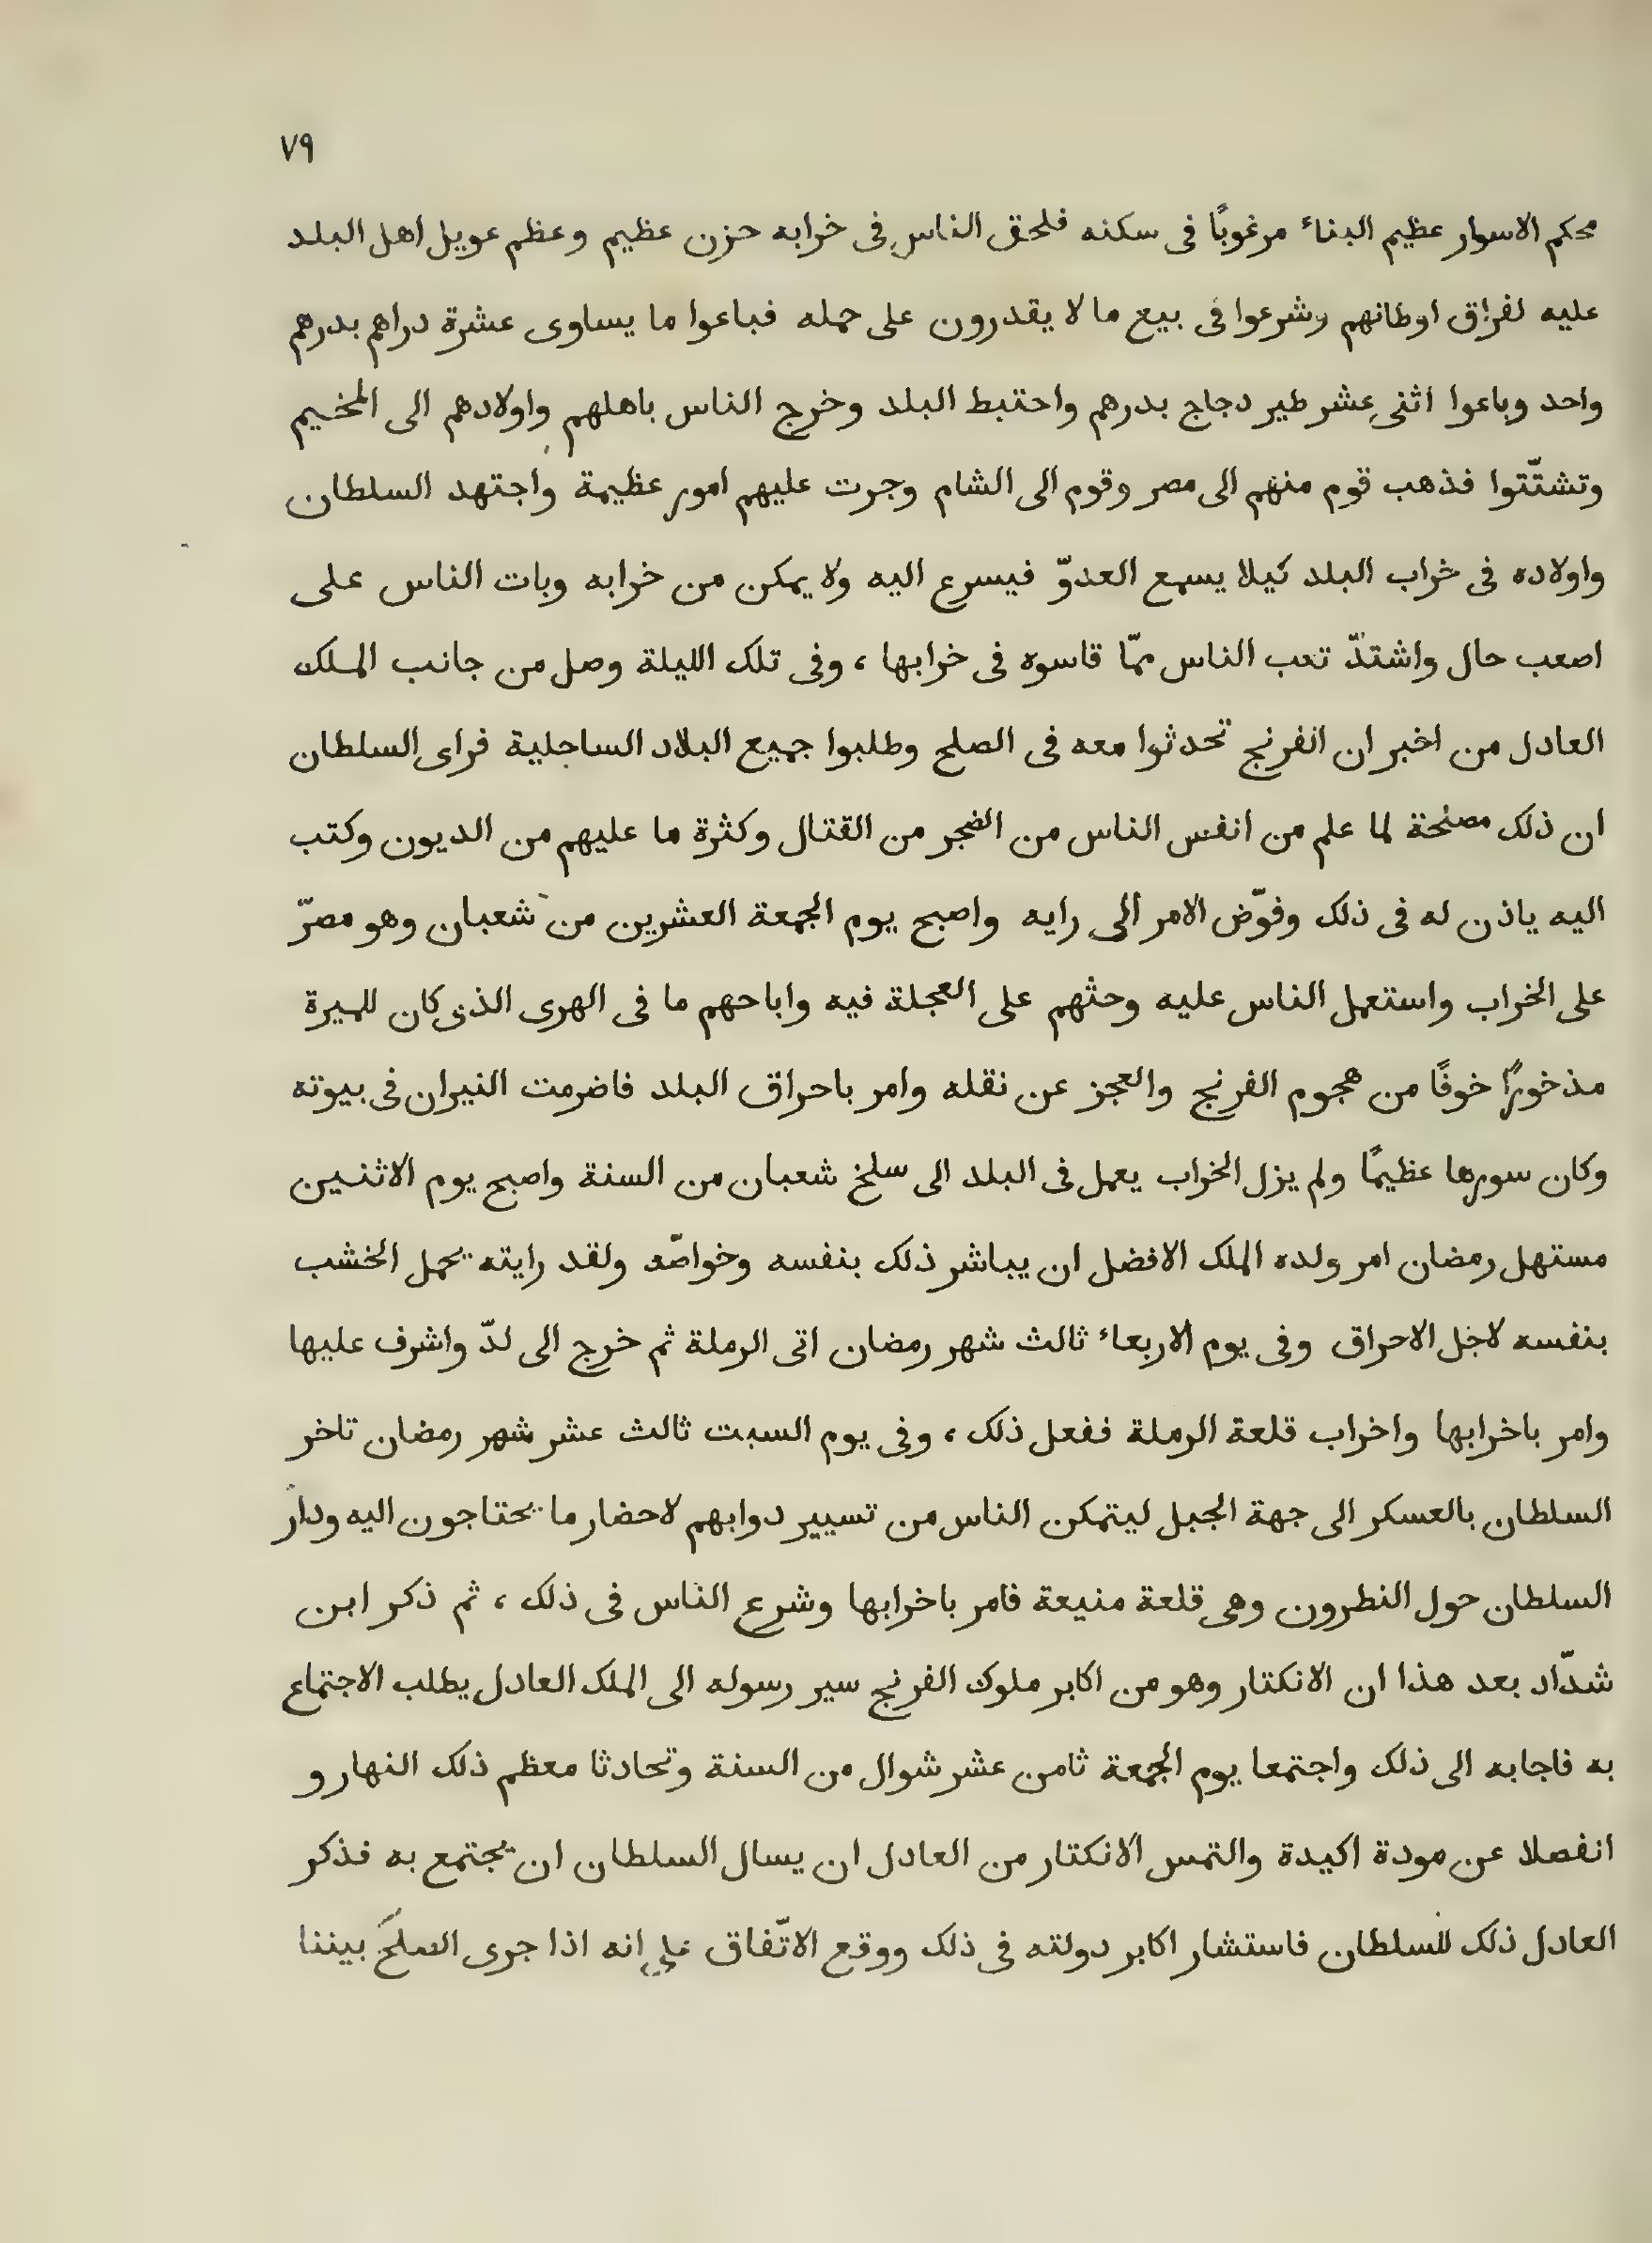 ٧٩
محكم الاسوار عظيم البناء مرغوبًا فى سكنه فلحق الناس فى خرابه حزن عظيم وعظم عويل اهل البلد
عليه لفراق اوطانهم وشرعوا فى بيع ما لا يقدرون على حمله فباعوا ما يساوى عشرة دراهم بدرهم
واحد وباعوا اثنى عشر طير دجاج بدرهم واحتبط البلد وخرج الناس باهلهم واولادهم الى المخيم
وتشتّتوا فذهب قوم منهم الى مصر وقوم الى الشام وجرت عليهم امور عظيمة واجتهد السلطان
واولاده فى خراب البلد كيلا يسمع العدوّ فيسرع اليه ولا يمكن من خرابه وبات الناس على
اصعب حال واشتدّ تعب الناس ممّا قاسوه فى خرابها ، وفى تلك الليلة وصل من جانب الملك
العادل من اخبر ان الفرنج تحدثوا معه فى الصلح وطلبوا جميع البلاد الساحلية فراى السلطان
ان ذلك مصلحة لما علم من انفس الناس من الضجر من القتال وكثرة ما عليهم من الديون وكتب
اليه ياذن له فى ذلك وفوّض الامر الى رايه واصبح يوم الجمعة العشرين من شعبان وهو مصرّ
على الخراب واستعمل الناس عليه وحثهم على العجلة فيه واباحهم ما فى الهرى الذى كان للميرة
مذخورًا خوفًا من هجوم الفرنج والعجز عن نقله وامر باحراق البلد فاضرمت النيران فى بيوته
وكان سورها عظيمًا ولم يزل الخراب يعمل فى البلد الى سلخ شعبان من السنة واصبح يوم الاثنين
مستهل رمضان امر ولده الملك الافضل ان يباشر ذلك بنفسه وخواصّه ولقد رايته يحمل الخشب
بنفسه لاجل الاحراق وفى يوم الاربعاء ثالث شهر رمضان اتى الرملة ثم خرج الى لدّ واشرف عليها
وامر باخرابها واخراب قلعة الرملة ففعل ذلك ، وفى يوم السبت ثالث عشر شهر رمضان تاخر
السلطان بالعسكر الى جهة الجبل ليتمكن الناس من تسيير دوابهم لاحضار ما يحتاجون اليه ودار
السلطان حول النطرون وهى قلعة منيعة فامر باخرابها وشرع الناس فى ذلك ، ثم ذكر ابن
شدّاد بعد هذا ان الانكتار وهو من اكابر ملوك الفرنج سير رسوله الى الملك العادل يطلب الاجتماع
به فاجابه الى ذلك واجتمعا يوم الجمعة ثامن عشر شوال من السنة وتحادثا معظم ذلك النهار و
انفصلا عن مودة اكيدة والتمس الانكتار من العادل ان يسال السلطان ان يجتمع به فذكر
العادل ذلك للسلطان فاستشار اكابر دولته فى ذلك ووقع الاتّفاق على انه اذا جرى الصلح بيننا